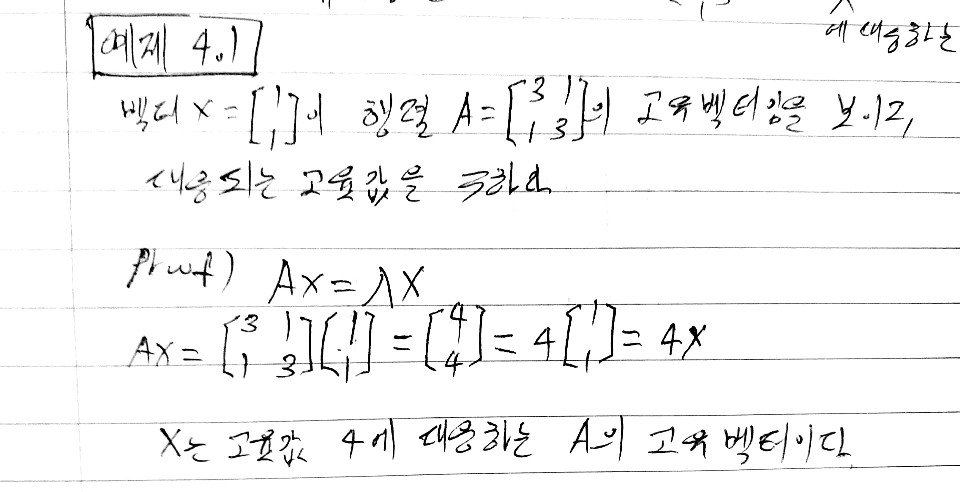 에 대응하는
예제 4.1
벡터 x = [1 1]이 행렬 A = [3 1 1 3]의 고유벡터임을 보이고,
대응되는 고윳값을 구하라
proof) Ax = λx
Ax = [3 1 1 3][1 1] = [4 4] = 4[1 1] = 4x
x는 고윳값 4에 대응하는 A의 고유벡터이다